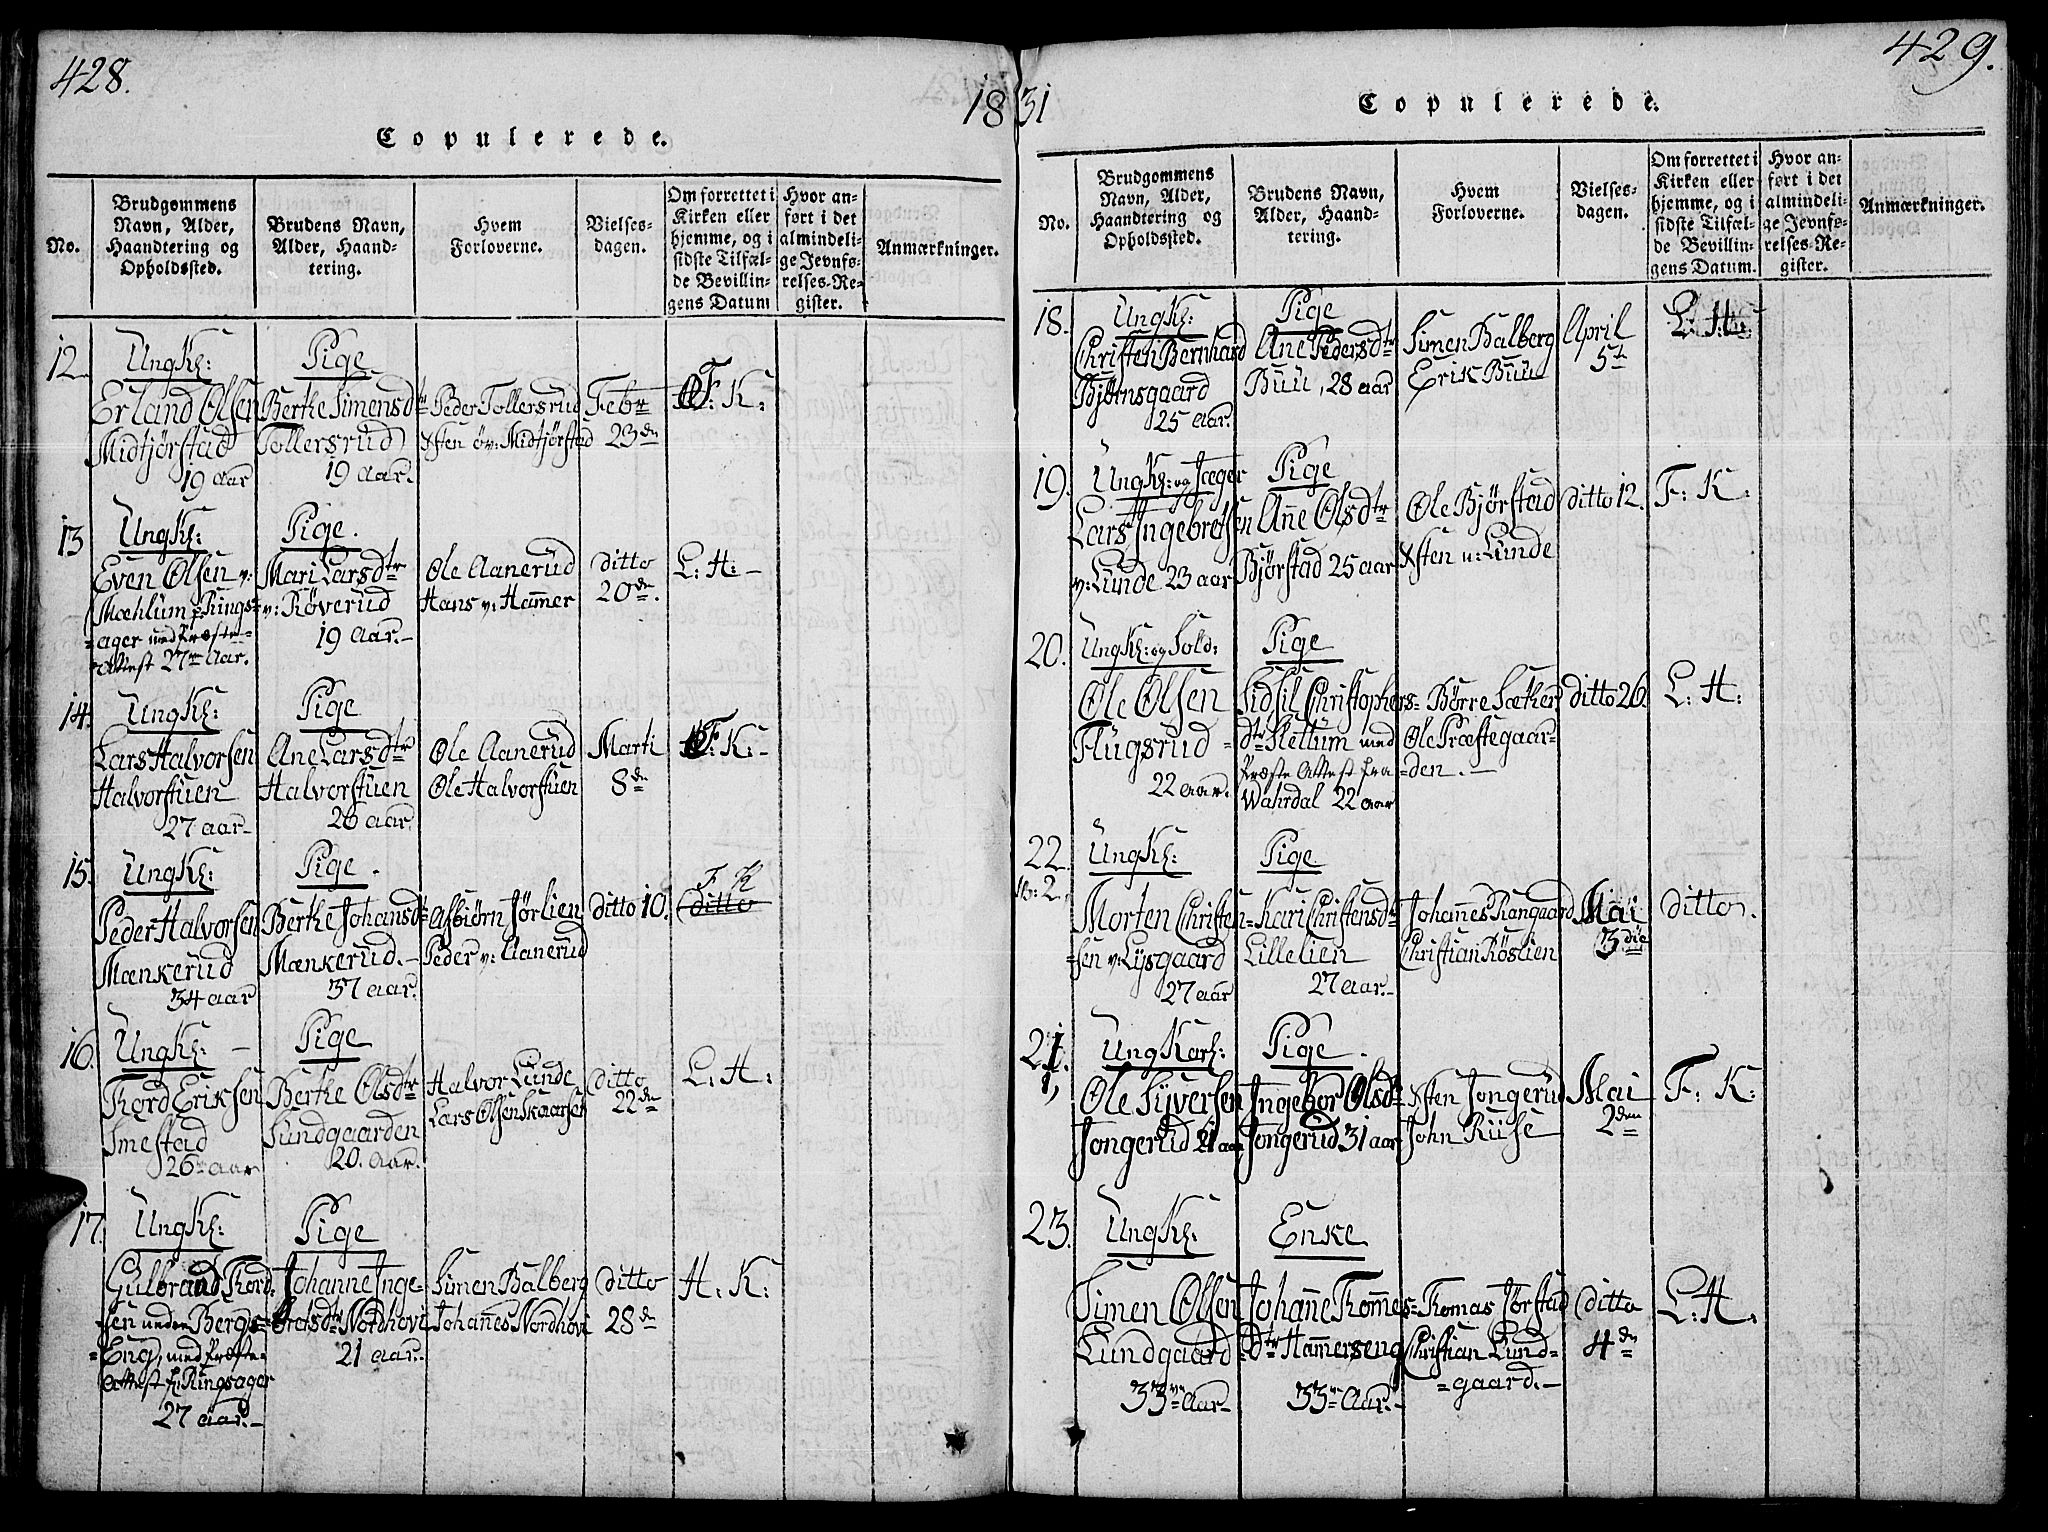 428.
1831
Copulerede.
No.
Brudgommens Navn, Alder, Haandtering og Opholdssted.
Brudens Navn, Alder, Haand-tering.
Hvem Forloverne.
Vielses-dagen.
Om forrettet i Kirken eller hjemme, og i sidste Tilfæl-de Bevillin-gens Datum
Hvor an-ført i det almindeli-ge Jevnfø-relses-Re-gister.
Anmærkninger.
12.
UngK:
Erland Olsen
Midtjørstad
19 aar
Pige
Berthe Simensdtr
Tollersrud
19 aar.
Peder Tollersrud
Xsten öv: Midtjørstad
Febr
23de
F: K:
13
UngK:
Even Olsen v:
Mæhlum p: Rings=
=ager med Præste=
Attest 27 Aar.
Pige.
Mari Larsdtr
v: Röverud
19 Aar.-
Ole Aanerud
Hans v: Hammer
ditto
20de.
L: H:-
14.
UngK:
Lars Halvorsen
Halvorstuen
27 aar-
Pige
Ane Larsdtr
Halvorstuen
26 aar.
Ole Aanerud
Ole Halvorstuen
Marti
8de
F: K:-
15.
UngK:
Peder Halvorsen
Mænkerud
34 aar
Pige.
Berthe Johansd:
Mænkerud.-
37 aar.
Asbiörn Jörlien
Peder v: Aanerud
ditto 10.
F K
ditto
16.
UngK: -
Thord Eriksen
Smestad
26 aar
Pige
Berthe Olsdtr
Sundgaarden
20. aar.
Halvor Lunde
Lars Olsen Skaarsen
ditto
22de
L: H:
17.
UngK:
Gulbrand Thord:
sen under Bergs=
=Eng, med Præste=
Attest fr: Ringsager
27 aar.-
Pige
Johanne Inge=
bretsdtr Nordhovi
21 aar.
Simen Balberg
Johañes Nordhovi
ditto
28de
H. K:
429.
Copulerede.
No.
Brudgommens Navn, Alder, Haandtering og Opholdssted.
Brudens Navn, Alder, Haand-tering.
Hvem Forloverne.
Vielses-dagen.
Om forrettet i Kirken eller hjemme, og i sidste Tilfæl-de Bevillin-gens Datum.
Hvor an-ført i det almindeli-ge Jevnfø-relses-Re-gister.
Anmærkninger.
18.
UngK:
Christen Bernhard
Bjørnsgaard
25 aar.
Pige
Ane Pedersdtr
Buu, 28 aar
Simen Balberg
Erik Buu
April
5te
L: H:
19.
UngK: og Jæger
Lars Ingebretsen
v: Lunde 23 aar
Pige
Añe Olsdtr
Bjørstad 25 aar
Ole Bjørstad
Xsten n: Lunde
ditto 12.
F: K:
20.
UngK: og Sold:
Ole Olsen
Flugsrud
22 aar.
Pige
Sidsil Christophers=
=dtr Slettum med
Præste Attest fra
Wahrdal 22 aar
Børre Sæther
Ole Præstegaar=
=den.-
ditto 26.
L: H:
22.
No: 2.
UngK:
Morten Christen=
=sen v: Lysgaard
27 aar
Pige
Kari Christensdtr
Lillelien
27 aar.-
Johañes Rangaard
Christian Röslien
Mai
3die
ditto.
21.
1,
UngKarl:
Ole Syversen
Jongerud 21 aar
Pige.
Ingebor Olsd=
Jongerud 31 aar
Xsten Jongerud
John Riise
Mai
2den
F: K:
23.
UngK:
Simen Olsen
Lundgaard
33 Aar-
Enke
Johañe Thomes=
=Dtr Hammerseng
33 Aar.-
Thomas Jørstad
Christian Lund=
=gaard.-
ditto
4de
L: H.